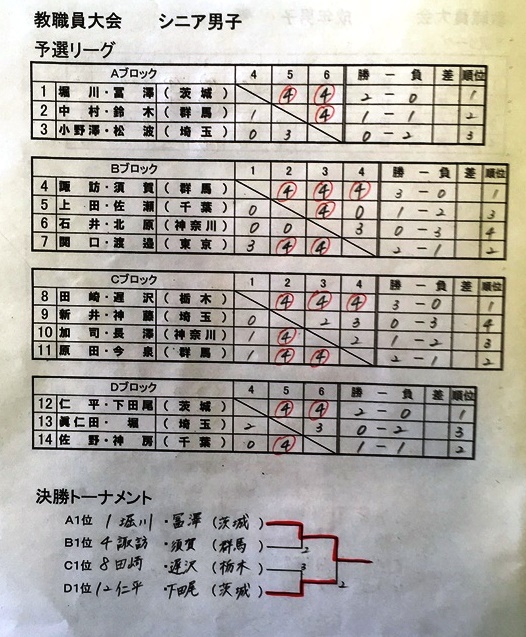 教職員大会 シニア男子
予選リーグ
Aブロック 4 5 6 勝 － 負 差 順位
1 堀川・冨澤 （茨城） ④ ④ 2 － 0 1
2 中村・鈴木 （群馬） 1 ④ 1 － 1 2
3 小野澤・松波 （埼玉） 0 3 0 － 2 3
Bブロック 1 2 3 4 勝 － 負 差 順位
4 諏訪・須賀 （群馬） ④ ④ ④ 3 － 0 1
5 上田・佐瀬 （千葉） 0 ④ 0 1 － 2 3
6 石井・北原 （神奈川） 0 0 3 0 － 3 4
7 関口・渡邉 （東京） 3 ④ ④ 2 － 1 2
Cブロック 1 2 3 4 勝 － 負 差 順位
8 田崎・遅沢 （栃木） ④ ④ ④ 3 － 0 1
9 新井・神藤 （埼玉） 0 2 3 0 － 3 4
10 加司・長澤 （神奈川） 1 ④ 2 1 － 2 3
11 原田・今泉 （群馬） 1 ④ ④ 2 － 1 2
Dブロック 4 5 6 勝 － 負 差 順位
12 仁平・下田尾 （茨城） ④ ④ 2 － 0 1
13 眞仁田・堀 （埼玉） 2 3 0 － 2 3
14 佐野・神房 （千葉） 0 ④ 1 － 1 2
決勝トーナメント
A1位 1 堀川・冨澤 （茨城）
B1位 4 諏訪・須賀 （群馬） 2
C1位 8 田崎・遅沢 （栃木） 3
D1位 12 仁平・下田尾 （茨城） 2